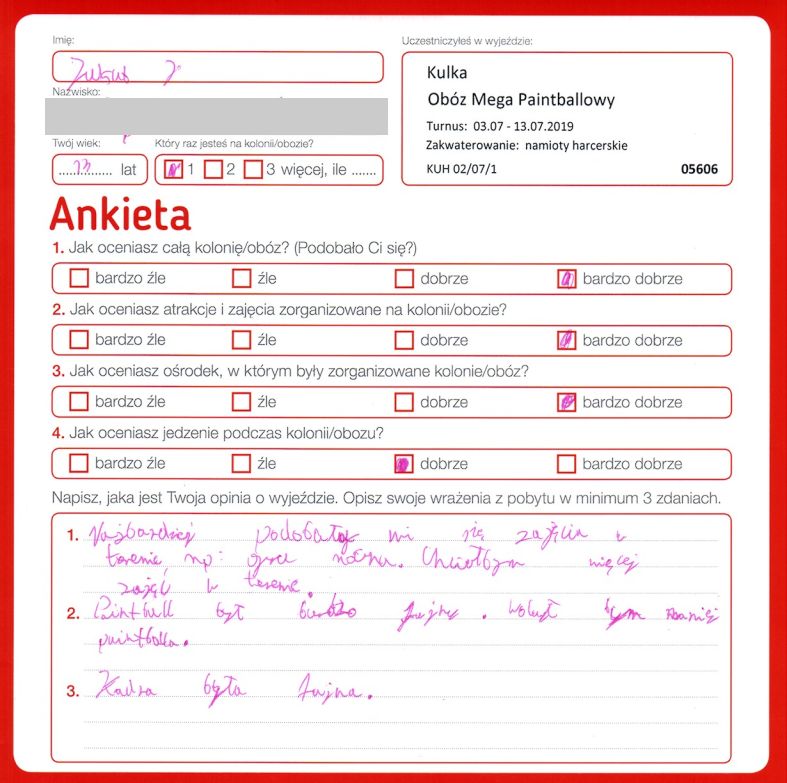 Imię:
Uczestniczyłeś w wyjeździe:
Jakub J
Kulka
Obóz Mega Paintballowy
Turnus: 03.07 - 13.07.2019
Zakwaterowanie: namioty harcerskie
KUH 02/07/1 05606
Nazwisko:
Twój wiek: Który raz jesteś na kolonii/obozie?
13 lat 1 2 3 więcej, ile .......
Ankieta
1. Jak oceniasz całą kolonię/obóz? (Podobało Ci się?)
bardzo źle źle dobrze bardzo dobrze
2. Jak oceniasz atrakcje i zajęcia zorganizowane na kolonii/obozie?
bardzo źle źle dobrze bardzo dobrze
3. Jak oceniasz ośrodek, w którym były zorganizowane kolonie/obóz?
bardzo źle źle dobrze bardzo dobrze
4. Jak oceniasz jedzenie podczas kolonii/obozu?
bardzo źle źle dobrze bardzo dobrze
Napisz, jaka jest Twoja opinia o wyjeździe. Opisz swoje wrażenia z pobytu w minimum 3 zdaniach.
1. Najbardziej podobały mi się zajęcia w
terenie, np: gra nocna. Chciałbym więcej
zajęć w terenie.
2. Paintball był bardzo fajny.
paintballa.
3. Kadra była fajna.